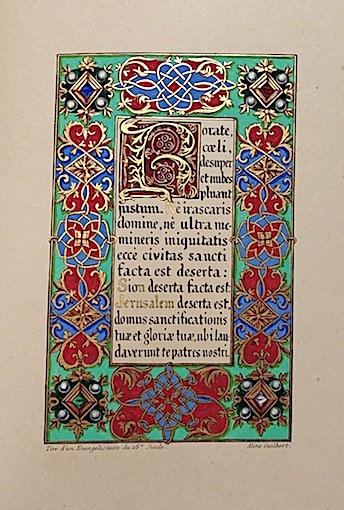 Rorate,
cœli,
desuper
et nubes
pluant
justum. Ne irascaris
domine, ne ultra me-
mineris iniquitatis
ecce civitas sancti
facta est deserta:
Sion deserta facta est:
Jerusalem deserta est,
domus sanctificationis
tuæ et gloriæ tuæ, ubi lau
daverunt te patres nostri.
Tiré d'un Evangélistaire du 16e Siècle.
Aline Guilbert.